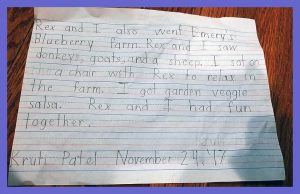 Rex and I also went Emery's
Blueberry Farm. Rex and I saw
donkeys, goats, and a sheep. I sat on
a chair with Rex to relax in
the farm. I got garden veggie
salsa. Rex and I had fun
together.
Kruti Patel November 24, 17